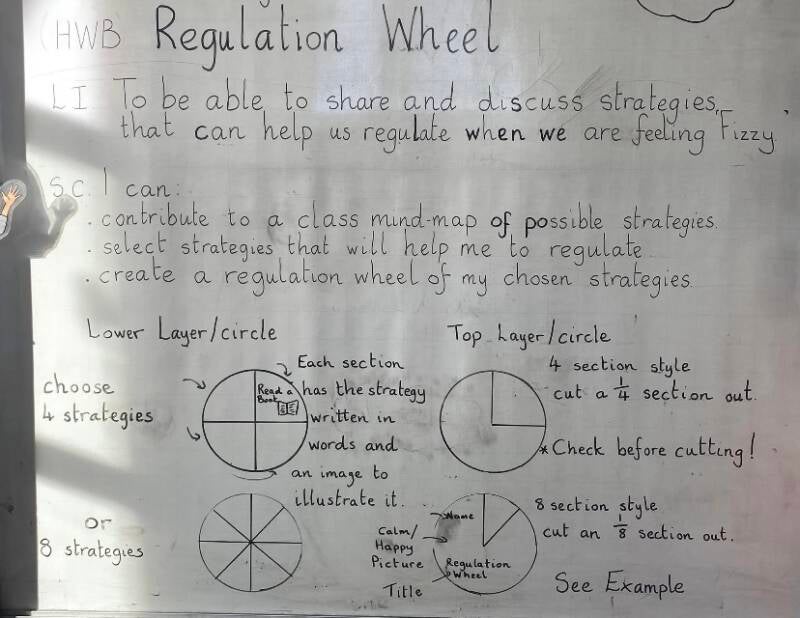 HWB Regulation Wheel
LI. To be able to share and discuss strategies,
that can help us regulate when we are feeling Fizzy.
S.C. I can:
. contribute to a class mind-map of possible strategies.
. select strategies that will help me to regulate
. create a regulation wheel of my chosen strategies.
Lower Layer/circle
choose
4 strategies
Read a
Book
Each section
has the strategy
written in
words and
an image to
illustrate it.
or
8 strategies
Top Layer/circle
4 section style
cut a 1/4 section out.
*Check before cutting!
Name
Calm/
Happy
Picture
Regulation
Wheel
Title
8 section style
cut an 1/8 section out.
See Example